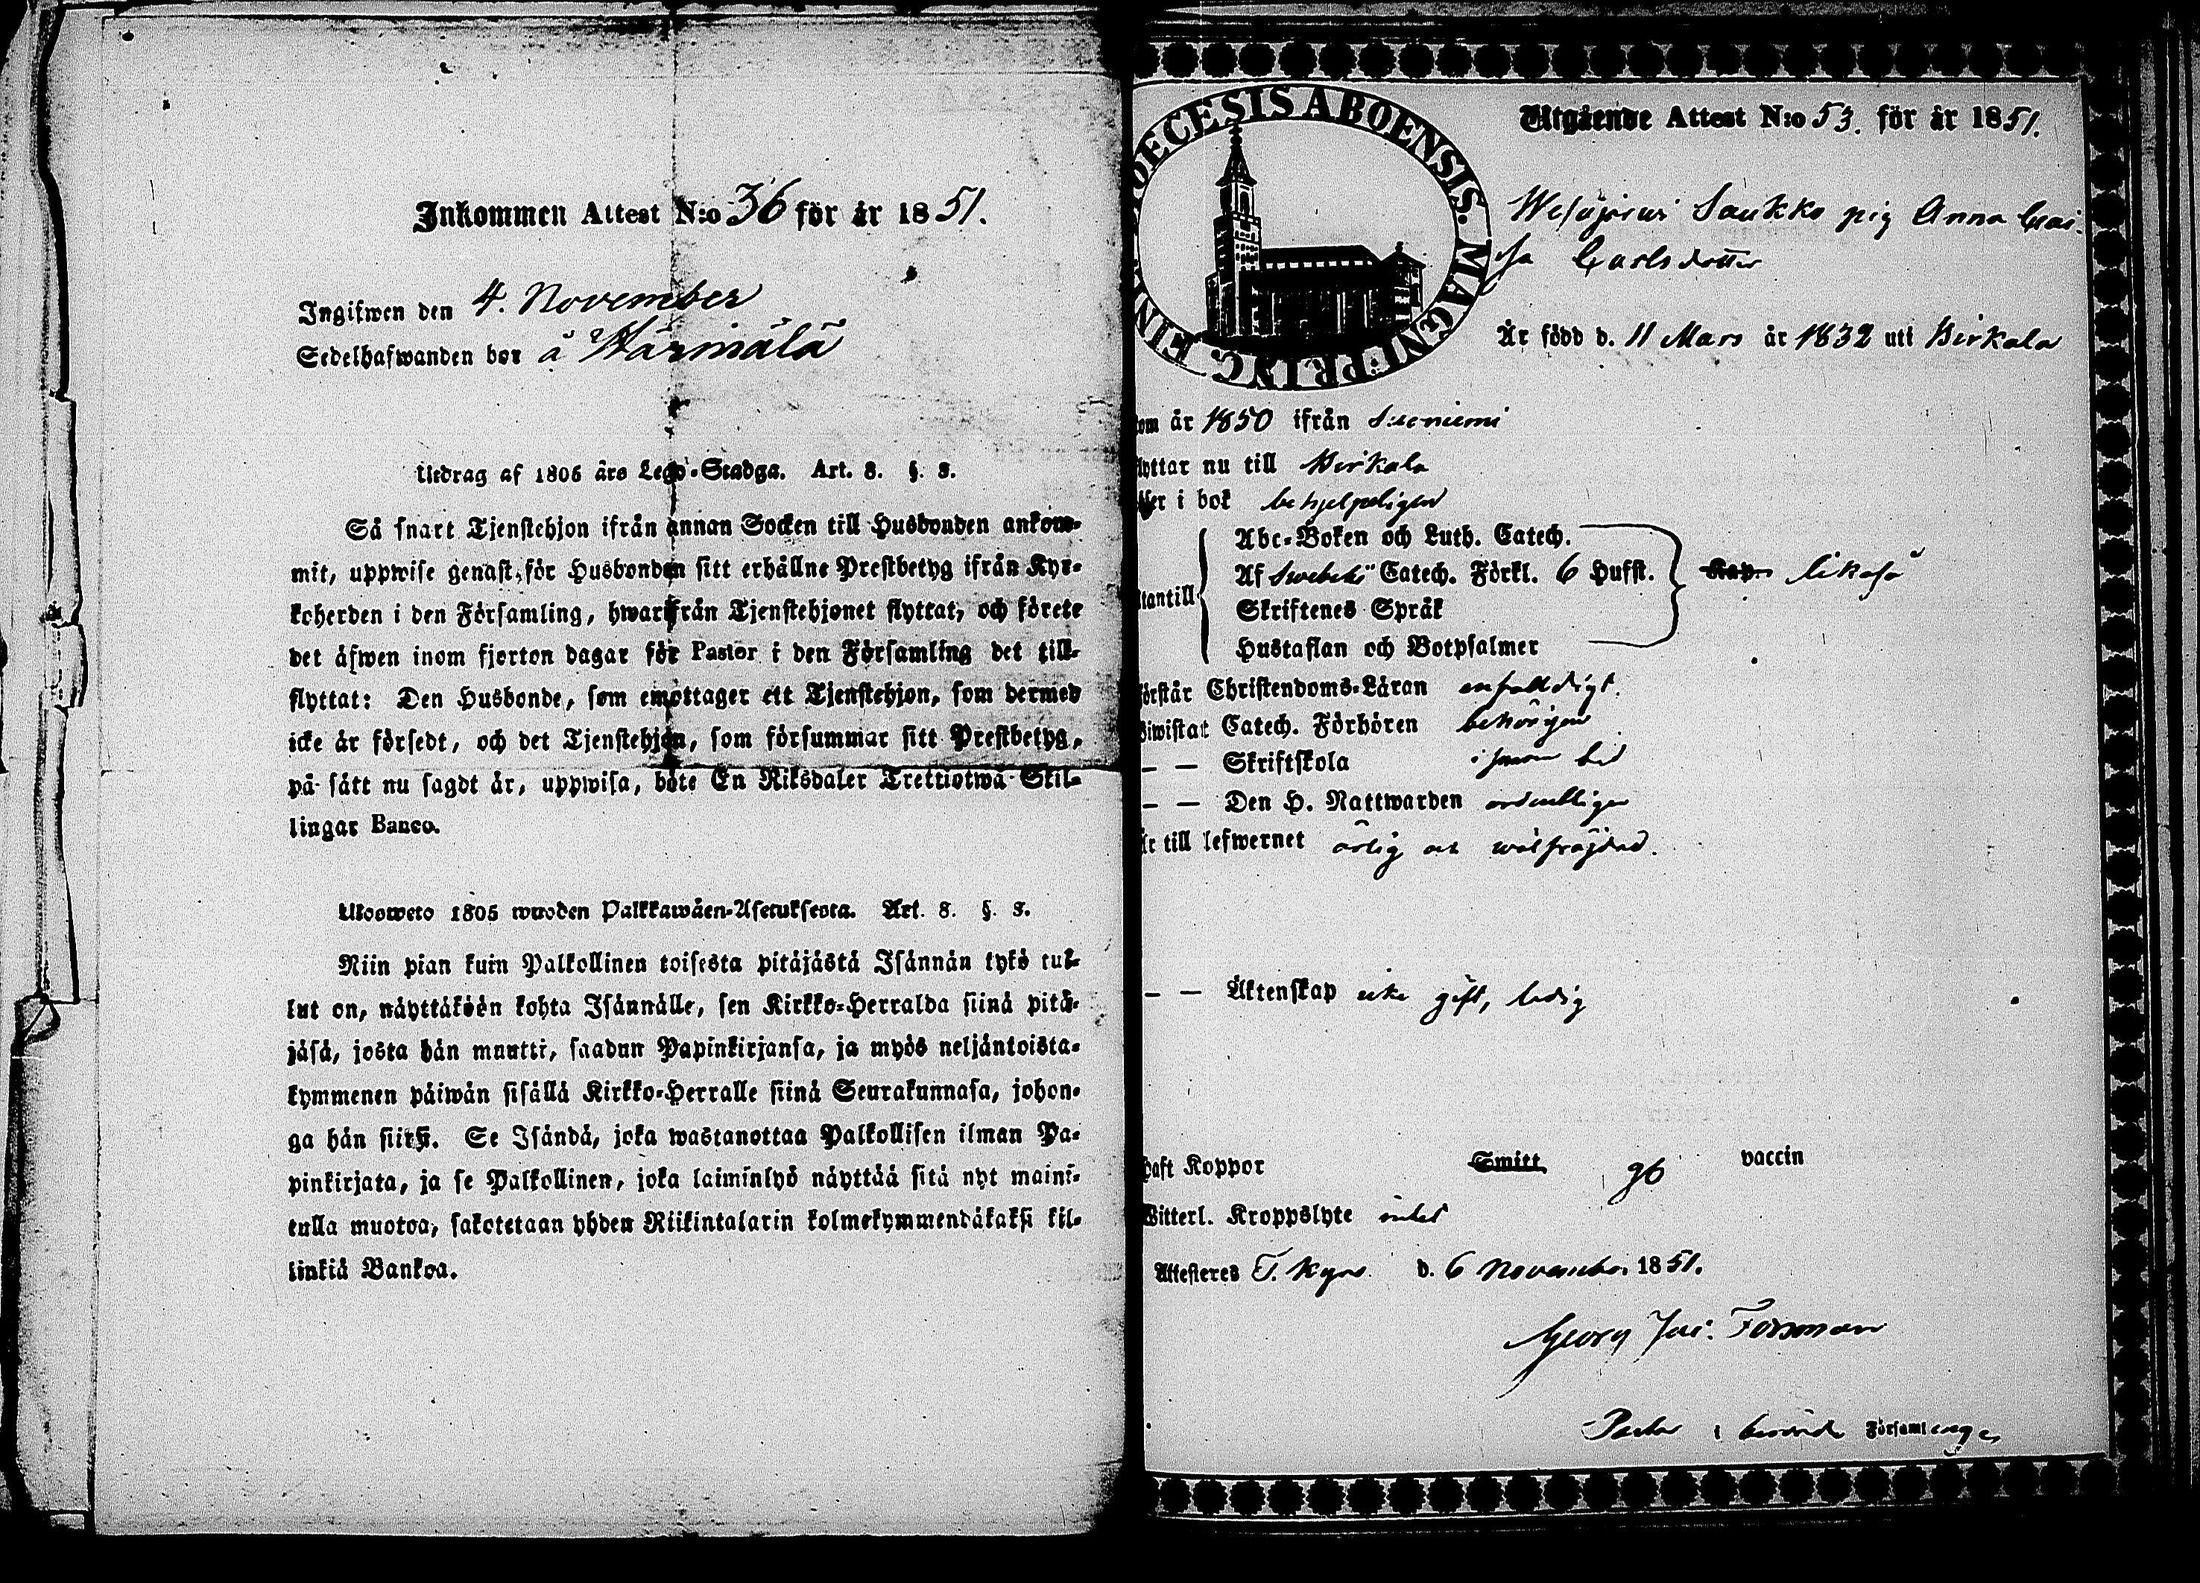 Inkommen Attest N:o 36 för år 1851.
Ingifwen den 4. November
Sedelhafwanden bor å Härmälä
Utdrag af 1805 års Lego-Stadga. Art. 8. §. 8.
Så snart Tjenstehjon ifrån annan Socken till Husbonden ankom-
mit, uppwise genast för Husbonden sitt erhållne Prestbetyg ifrån Kyr-
koherden i den Församling, hwarifrån Tjenstehjonet flyttat, och förete
det äfwen inom fjorton dagar för Pastor i den Församling det till-
flyttat: Den Husbonde, som emottager ett Tjenstehjon, som dermed
icke är försedt, och det Tjenstehjon, som försummar sitt Prestbetyg,
på sätt nu sagdt är, uppwisa, böte En Riksdaler Trettiotwå Skil-
lingar Banco.
Ulosweto 1805 wuoden Palkkawäen-Asetuksesta. Art. 8. §. 8.
Niin pian kuin Palkollinen toisesta pitäjästä Isännän tykö tul-
lut on, näyttäköön kohta Isännälle, sen Kirkko-Herralda siinä pitä-
jäsä, josta hän muutti, saadun Papinkirjansa, ja myös neljäntoista-
kymmenen päiwän sisällä Kirkko-Herralle siinä Seurakunnasa, johon-
ga hän siirsi. Se Isändä, joka wastanottaa Palkollisen ilman Pa-
pinkirjata, ja se Palkollinen, joka laiminlyö näyttää sitä nyt maini-
tulla muotoa, sakotetaan yhden Riikintalarin kolmekymmendäkaksi kil-
linkiä Bankoa.
DIOECESIS ABOENSIS. MAGNI PRINC. FINL.
Utgående Attest N:o 53. för år 1851.
Wesajärwi Saukko pig Anna Cai-
sa Carlsdotter
Är född d. 11 Mars år 1832 uti Birkala
kom år 1850 ifrån Suoniemi
flyttar nu till Birkala
läser i bok behjelpeligen
Abc-Boken och Luth. Catech.
Af Swebelii Catech. Förkl. 6 Hufst. likaså
utantill
Skriftenes Språk
Hustaflan och Botpsalmer
förstår Christendoms-Läran enfaldigt.
Biwistat Catech. Förhören behörigen
— — Skriftskola i sinom tid
— — Den H. Nattwarden ordentligen
Är till lefwernet ärlig och wälfräjdad.
— — Äktenskap icke gift, ledig
Haft Koppor Smitt gb vaccin
Witterl. Kroppslyte intet
Attesteres T. Kyro. d. 6 November 1851.
Georg Jac. Forsman
Pastor i berörde Församlingen